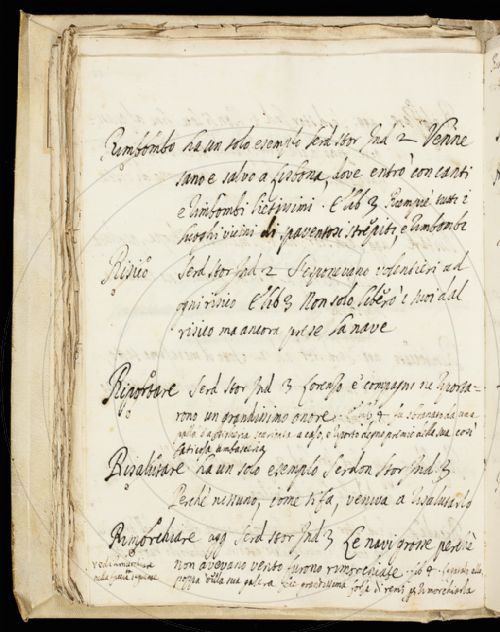 Rimbombo ha un solo esempio Serd Stor Ind 2 Venne
sano e salvo a Lisbona, dove entrò con canti
e rimbombi lietissimi. E lib 3 Riempiè tutti i
luoghi vicini di spaventosi strepiti, e rimbombi
Risico Serd Stor Ind 2 S'esponevano volentieri ad
ogni risico E lib 3 Non solo liberò i suoi dal
risico ma ancora prese la nave
Riportare Serd Stor Ind 3 Lorenzo e compagni ne riporta-
rono un grandissimo onore E lib 4
a caso, e riportò degno premio della sua così
faticosa ambasceria
Risalutare ha un solo esempio Serdon Stor Ind 3
Perchè nessuno, come si fa, veniva a risalutarlo
Rimorchiare agg Serd Stor Ind 3 Le navi grosse perchè
non avevano vento furono rimorchiate lib 4
poppa della sua galera grandissima forza di remi rimorchiarla